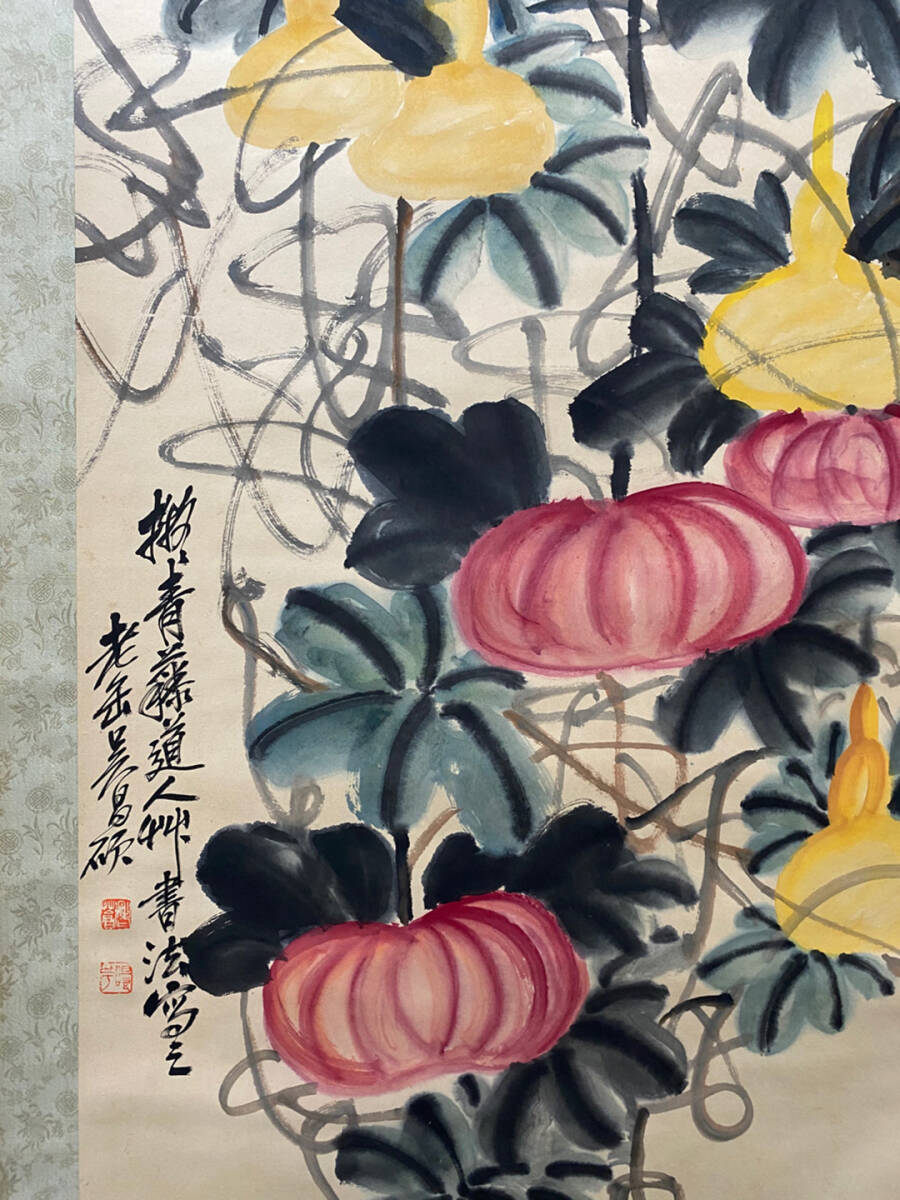 撫青藤道人艸書法寫之
老缶吳昌碩